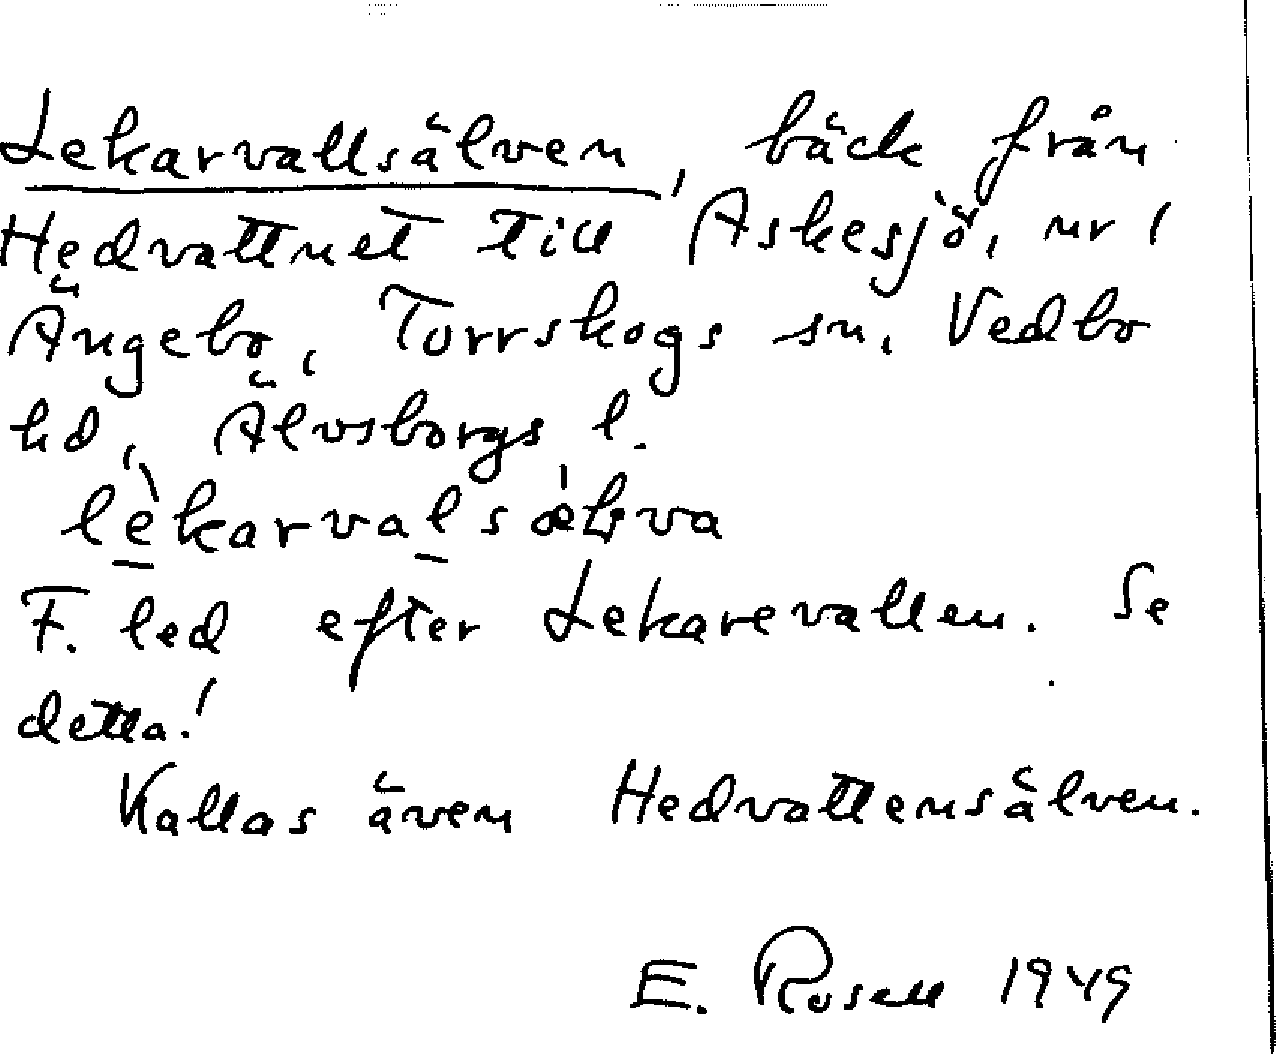 Lekarvallsälven, bäck från
Hedvattnet till Askesjö, nr 1
Ängebo, Torrskogs sn, Vedbo
hd, Älvsborgs l.
F. led efter Lekarevallen. Se
detta!
Kallas även Hedvattensälven.
E. Rosell 1949